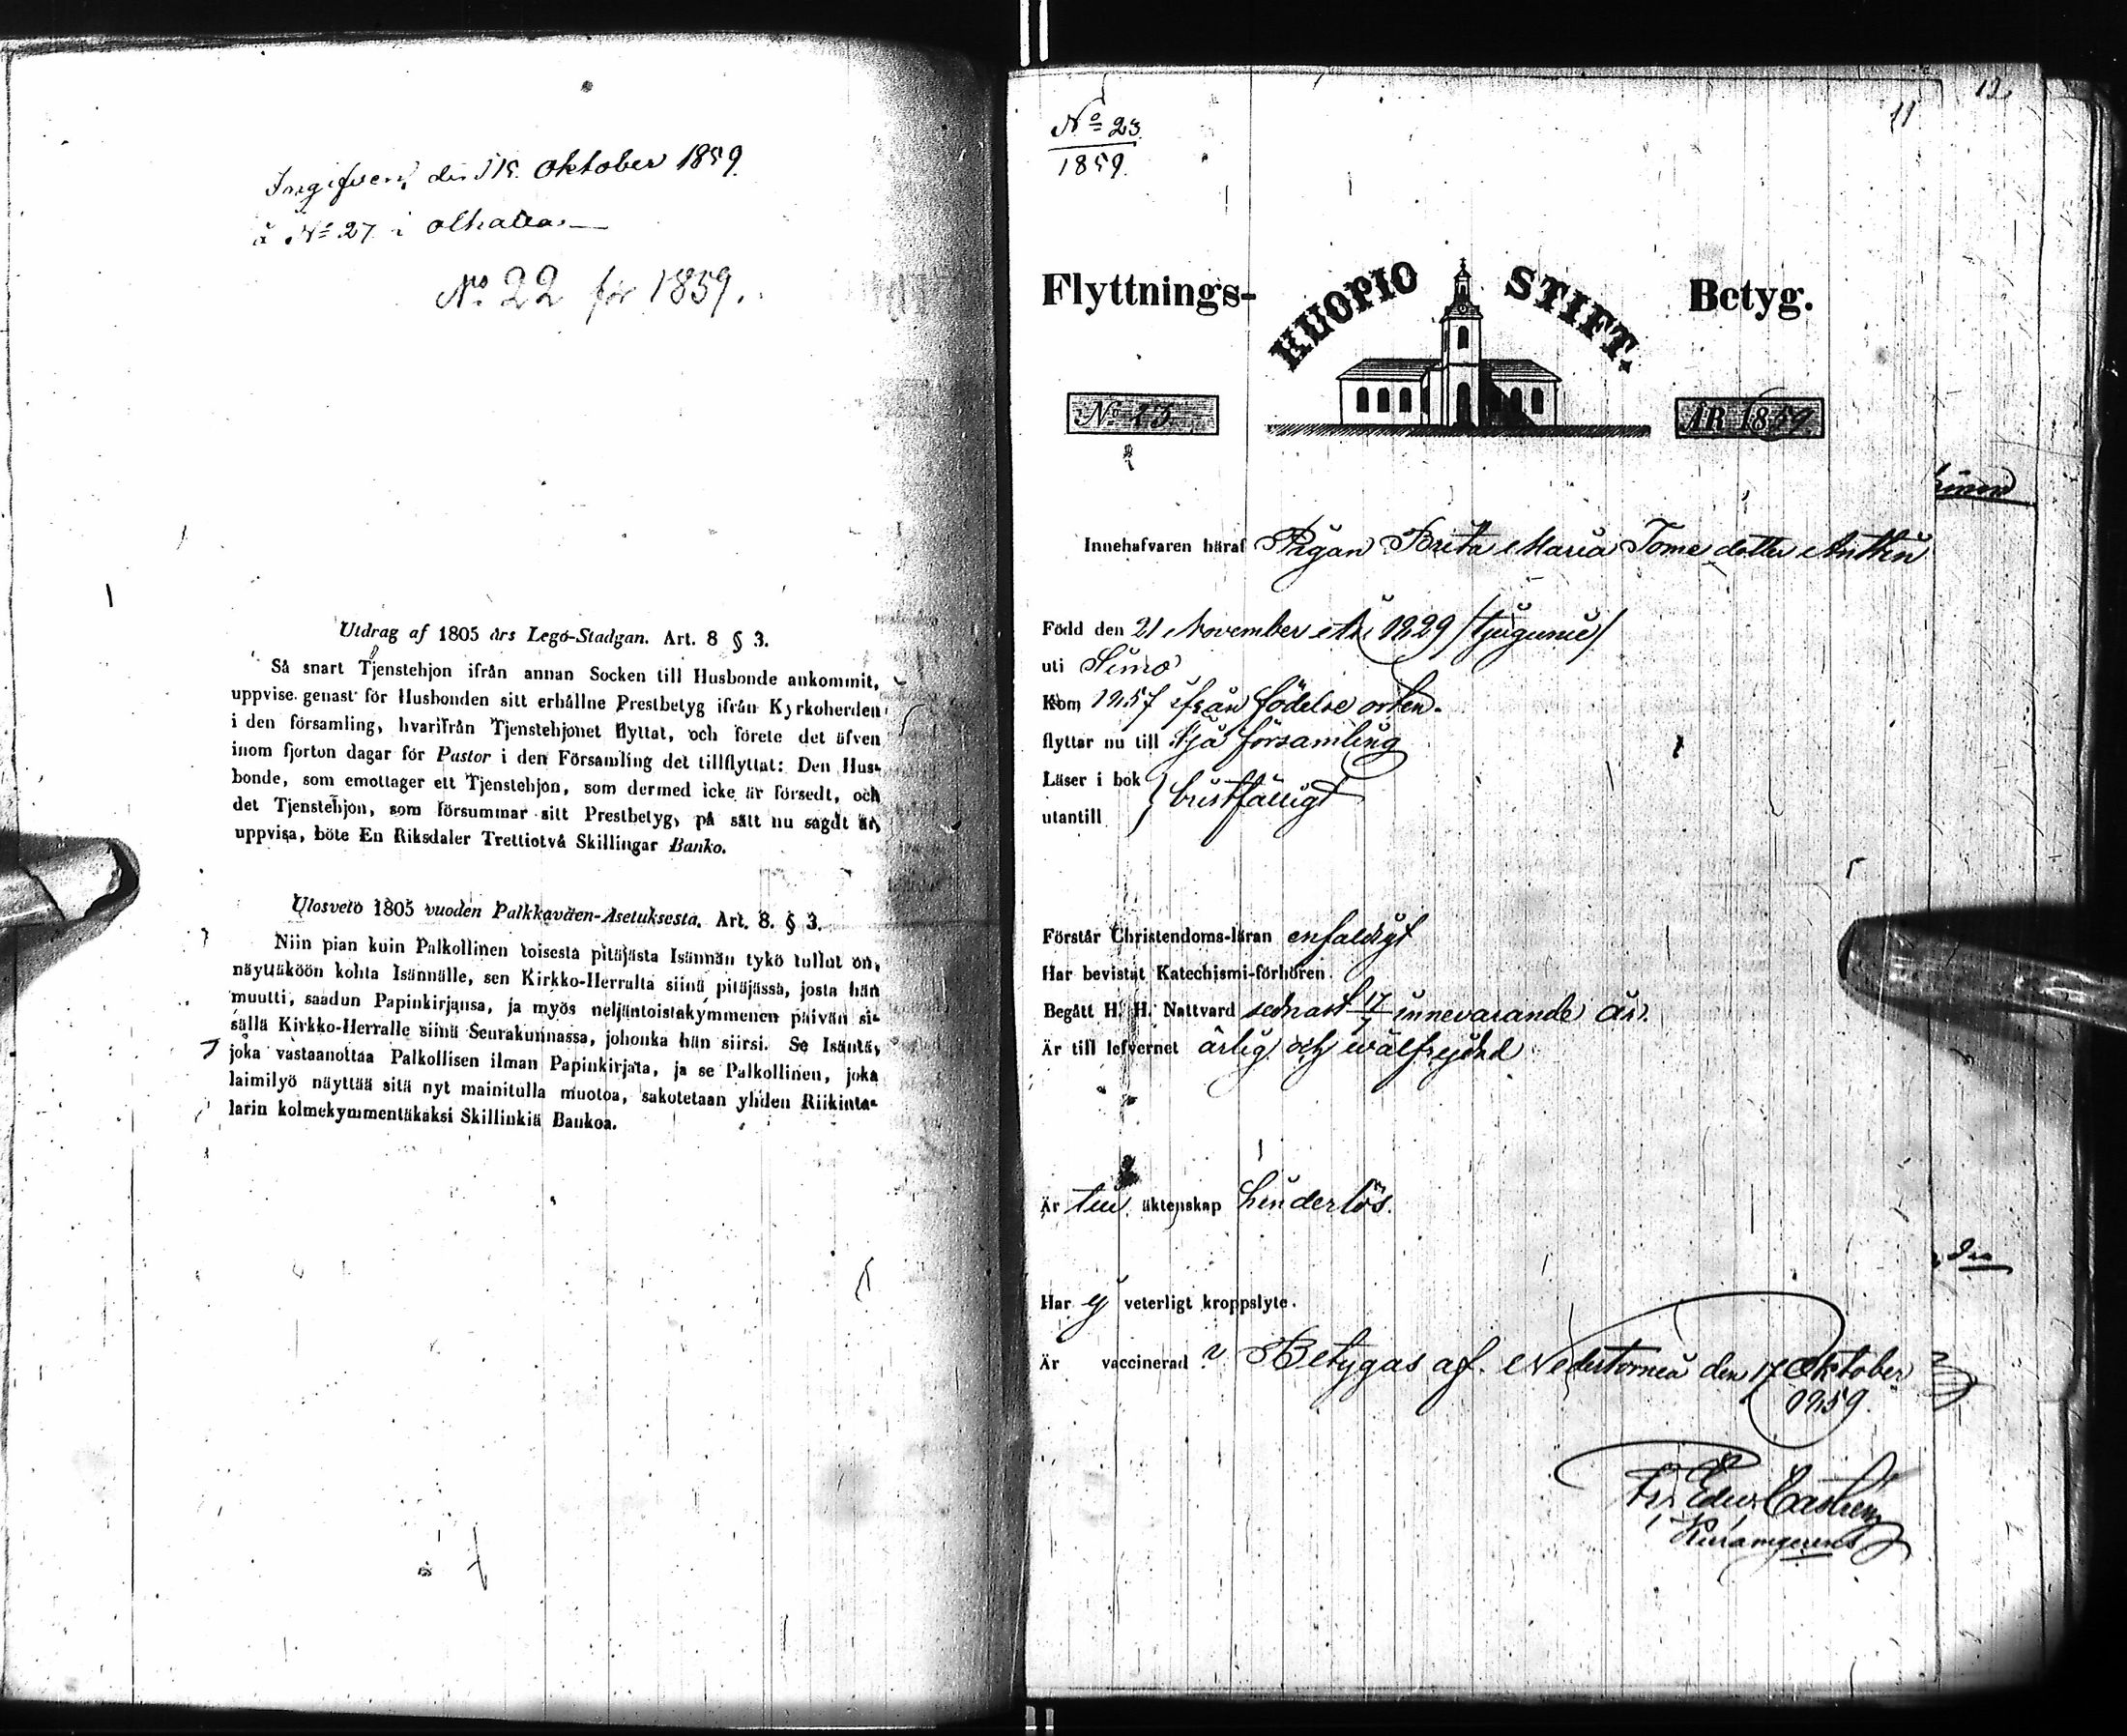 Ingifven den 15 Oktober 1859.
å No 27 i
No 22 för 1859.
Utdrag af 1805 års Lego-Stadgan. Art. 8 § 3.
Så snart Tjenstehjon ifrån annan Socken till Husbonde ankommit,
uppvise genast för Husbonden sitt erhållne Prestbetyg ifrån Kyrkoherden
i den församling, hvarifrån Tjenstehjonet flyttat, och förete det äfven
inom fjorton dagar för Pastor i den Församling det tillflyttat: Den Hus-
bonde, som emottager ett Tjenstehjon, som dermed icke är försedt, och
det Tjenstehjon, som försummar sitt Prestbetyg, på sätt nu sagdt är,
uppvisa, böte En Riksdaler Trettiotvå Skillingar Banko.
Ulosveto 1805 vuoden Palkkaväen-Asetuksesta. Art. 8. § 3.
Niin pian kuin Palkollinen toisesta pitäjästa Isännän tykö tullut on,
näyttäköön kohta Isännälle, sen Kirkko-Herralta siinä pitäjässä, josta hän
muutti, saadun Papinkirjansa, ja myös neljäntoistakymmenen päivän si-
sällä Kirkko-Herralle siinä Seurakunnassa, johonka hän siirsi. Se Isäntä,
joka vastaanottaa Palkollisen ilman Papinkirjata, ja se Palkollinen, joka
laimilyö näyttää sitä nyt mainitulla muotoa, sakotetaan yhden Riikinta-
larin kolmekymmentäkaksi Skillinkiä Bankoa.
12
11
No 23
1859.
Flyttnings- KUOPIO STIFT. Betyg.
No 23.
ÅR 1859.
Innehafvaren häraf Pigan Brita Maria Tomasdotter Anttu
Född den 21 November År 1829 /tjugunie/
uti Simo
Kom 1857 ifrån födelse orten.
flyttar nu till församling
Läser i bok
utantill } bristfälligt
Förstår Christendoms-läran enfaldigt
Har bevistat Katechismi-förhören.
Begått H. H. Nattvard sednast 17/7 innevarande år.
Är till lefvernet ärlig och wälfrejdad
Är till äktenskap hinderlös.
Har ej veterligt kroppslyte.
Är vaccinerad? Betygas af. Nedertorneå den 17 Oktober
1859.
Fr. Edw. Castrén